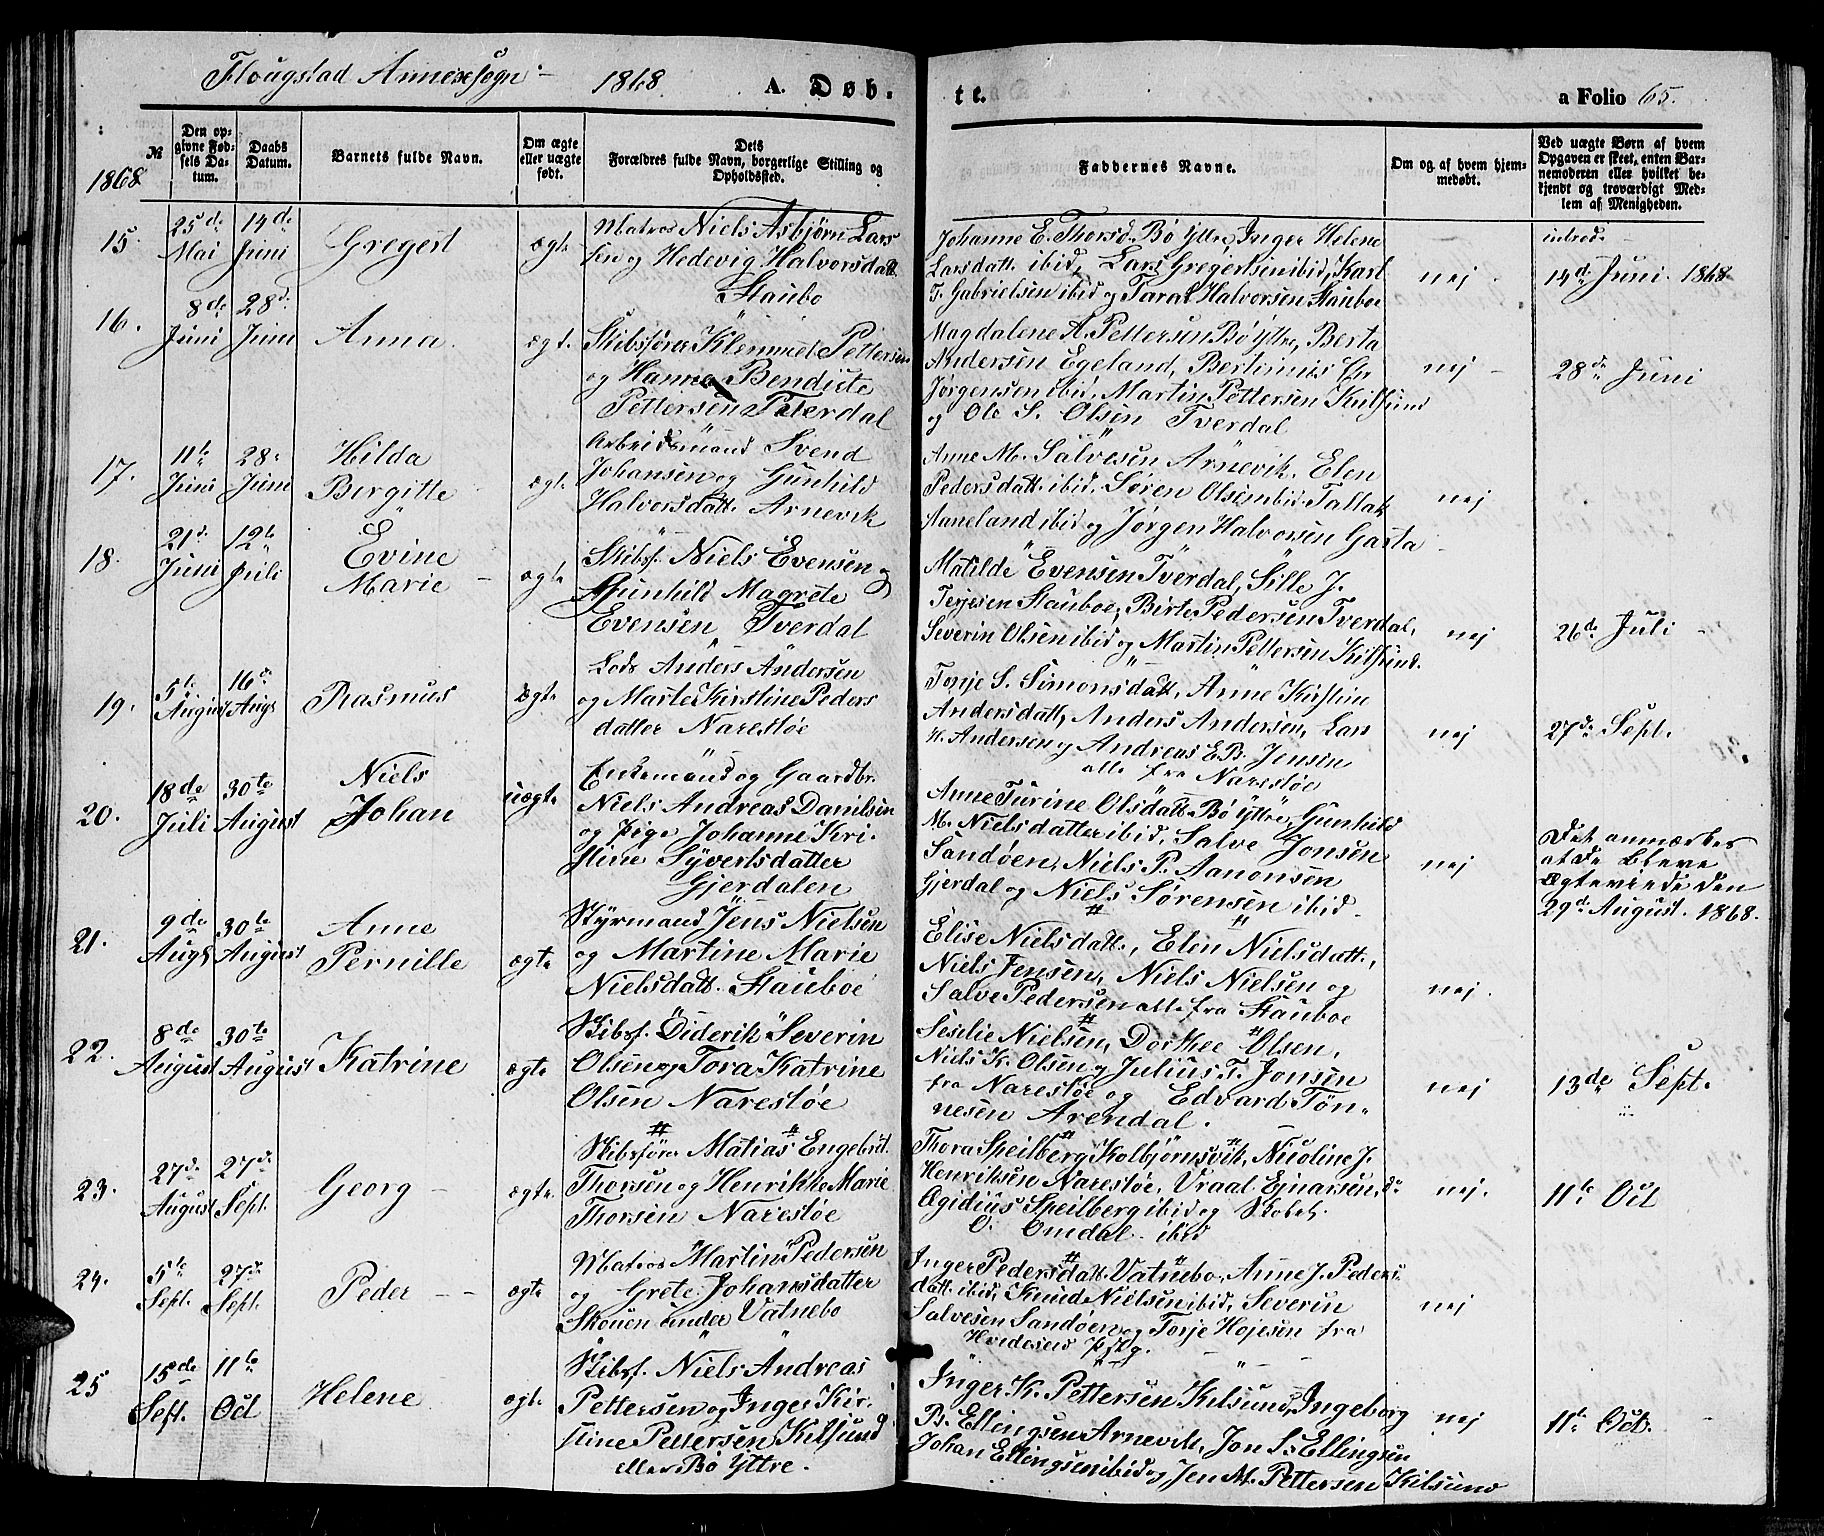 Flougstad Annexsogn 1868 A. Døb-
te. a Folio 65.
1868
№
Den op-
givne Fød-
sels Da-
tum.
Daabs
Datum.
Barnets fulde Navn.
Om ægte
eller uægte
født.
Dets
Forældres fulde Navn, borgerlige Stilling og
Opholdssted.
Faddernes Navne.
Om og af hvem hjem-
medøbt.
Ved uægte Børn af hvem
Opgaven er skeet, enten Bar-
nemoderen eller hvilket be-
kjendt og troværdigt Med-
lem af Menigheden.
15.
25de
Mai
14de
Juni
Gregert
ægte
Matros Niels Asbjørn Lars
sen og Hedevig Halvorsdatt.
Staubo
Johanne E. Thorsd. Bø Yttre, Inger Helene
Larsdatt. ibid, Lars Gregertsen ibid, Karl
T. Gabrielsen ibid og Taral Halvorsen Stauboe
nej
introd.
14de Juni 1868
16.
8de
Juni
28de
Juni
Anna
ægt.
Skibsfører Klemmet Pettersen
og Hanna Bendicte
Pettersen Tverdal
Magdalene A. Pettersen Bø Yttre, Berta
Andersen Egeland, Bertinius
Jørgensen ibid, Martin Pettersen Kilsund
og Ole S. Olsen Tverdal
nej
28de Juni
17.
11te
Juni
28
Juni
Hilda
Birgitte
ægt.
Arbeidsmand Svend
Johansen og Gunhild
Halvorsdatt. Arnevik
Anne M. Salvesen Arnevik, Elen
Pedersdatt. ibid, Søren Olsen ibid, Tallak
Aaneland ibid og Jørgen Halvorsen Garta
nej
18.
21de
Juni
12te
Juli
Evine
Marie
ægte
Skibsf. Niels Evensen og
Gunhild Magrete
Evensen Tverdal
Matilde Evensen Tverdal, Sille J.
Terjesen Stauboe, Birte Pedersen Tverdal,
Severin Olsen ibid og Martin Pettersen Kilsund.
nej
26de Juli
19.
5te
August
16de
Augs
Rasmus
ægte
Lods Anders Andersen
og Marte Kirstine Peders
datter Narestøe
Tonje S. Simonsdatt, Anne Kirstine
Andersdatt, Anders Andersen, Lars
H. Andersen og Andreas E. B. Jensen
alle fra Narestøe
nej
27de Sept.
20.
18de
Juli
30te
August
Niels
Johan
uægte
Enkemand og Gaardbr.
Niels Andreas Danilsen
og Pige Johanne Kri-
stine Syvertsdatter
Gjerdalen
Anne Turine Olsdatt. Bø Yttre, Gunhild
M. Nielsdatter ibid, Salve Jonsen
Sandøen, Niels P. Aanonsen
Gjerdal og Niels Sørensen ibid
nej
Det anmærkes
at de bleve
ægteviede den
29de August. 1868.
21.
9de
Augs
30te
August
Anne
Pernille
ægte
Styrmand Jens Nielsen
og Martine Marie
Nielsdatt. Stauboe
Elise Nielsdatt., Elen Nielsdatt.,
Niels Jensen, Niels Nielsen og
Salve Pedersen alle fra Stauboe
nej.
22.
8de
August
30te
August
Katrine
ægte
Skibsf. Diderik Severin
Olsen og Tora Katrine
Olsen Narestøe
Seselie Nielsen, Dorthee Olsen,
Niels K. Olsen og Julius T. Jonsen
fra Narestøe og Edvard Tøn-
nesen Arendal.
nej
13de Sept.
23.
27de
August
27de
Sept.
Georg
ægte.
Skibsfører Matias Engebret
Thorsen og Henrikke Marie
Thorsen Narestøe
Thora Speilberg Kolbjørnsvik, Nicoline J.
Henriksen Narestøe, Vraal Ejnarsen, do
Ægidius Speilberg ibid og
O. Omdal ibid
nej.
11te Oct
24.
5te
Sept.
27de
Sept.
Peder
ægte
Matros Martin Pedersen
og Grete Johansdatter
Skouen under Vatnebo
Inger Pedersdatt. Vatnebo, Anne J. Peders-
datt. ibid, Knud Nielsen ibid, Severin
Salvesen Sandøen og Torje Hojesen fra
Hvidesed
nej
25
15de
Sept.
11te
Oct
Helene
ægt.
Skibsf. Niels Andreas
Pettersen og Inger Kir-
stine Pettersen Kilsund
eller Bø Yttre.
Inger K. Pettersen Kilsund, Ingeborg
B. Ellingsen Arnevik, Jon S. Ellingsen
Johan Ellingsen ibid og Jen M. Pettersen Kilsund
nej
11te Oct.